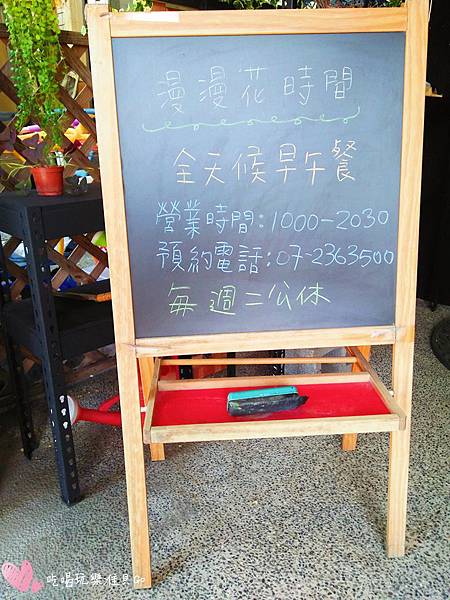 漫漫花時間
全天候早午餐
營業時間：1000-2030
預約電話：07-2363500
每週二公休
吃喝玩樂佳貝Go